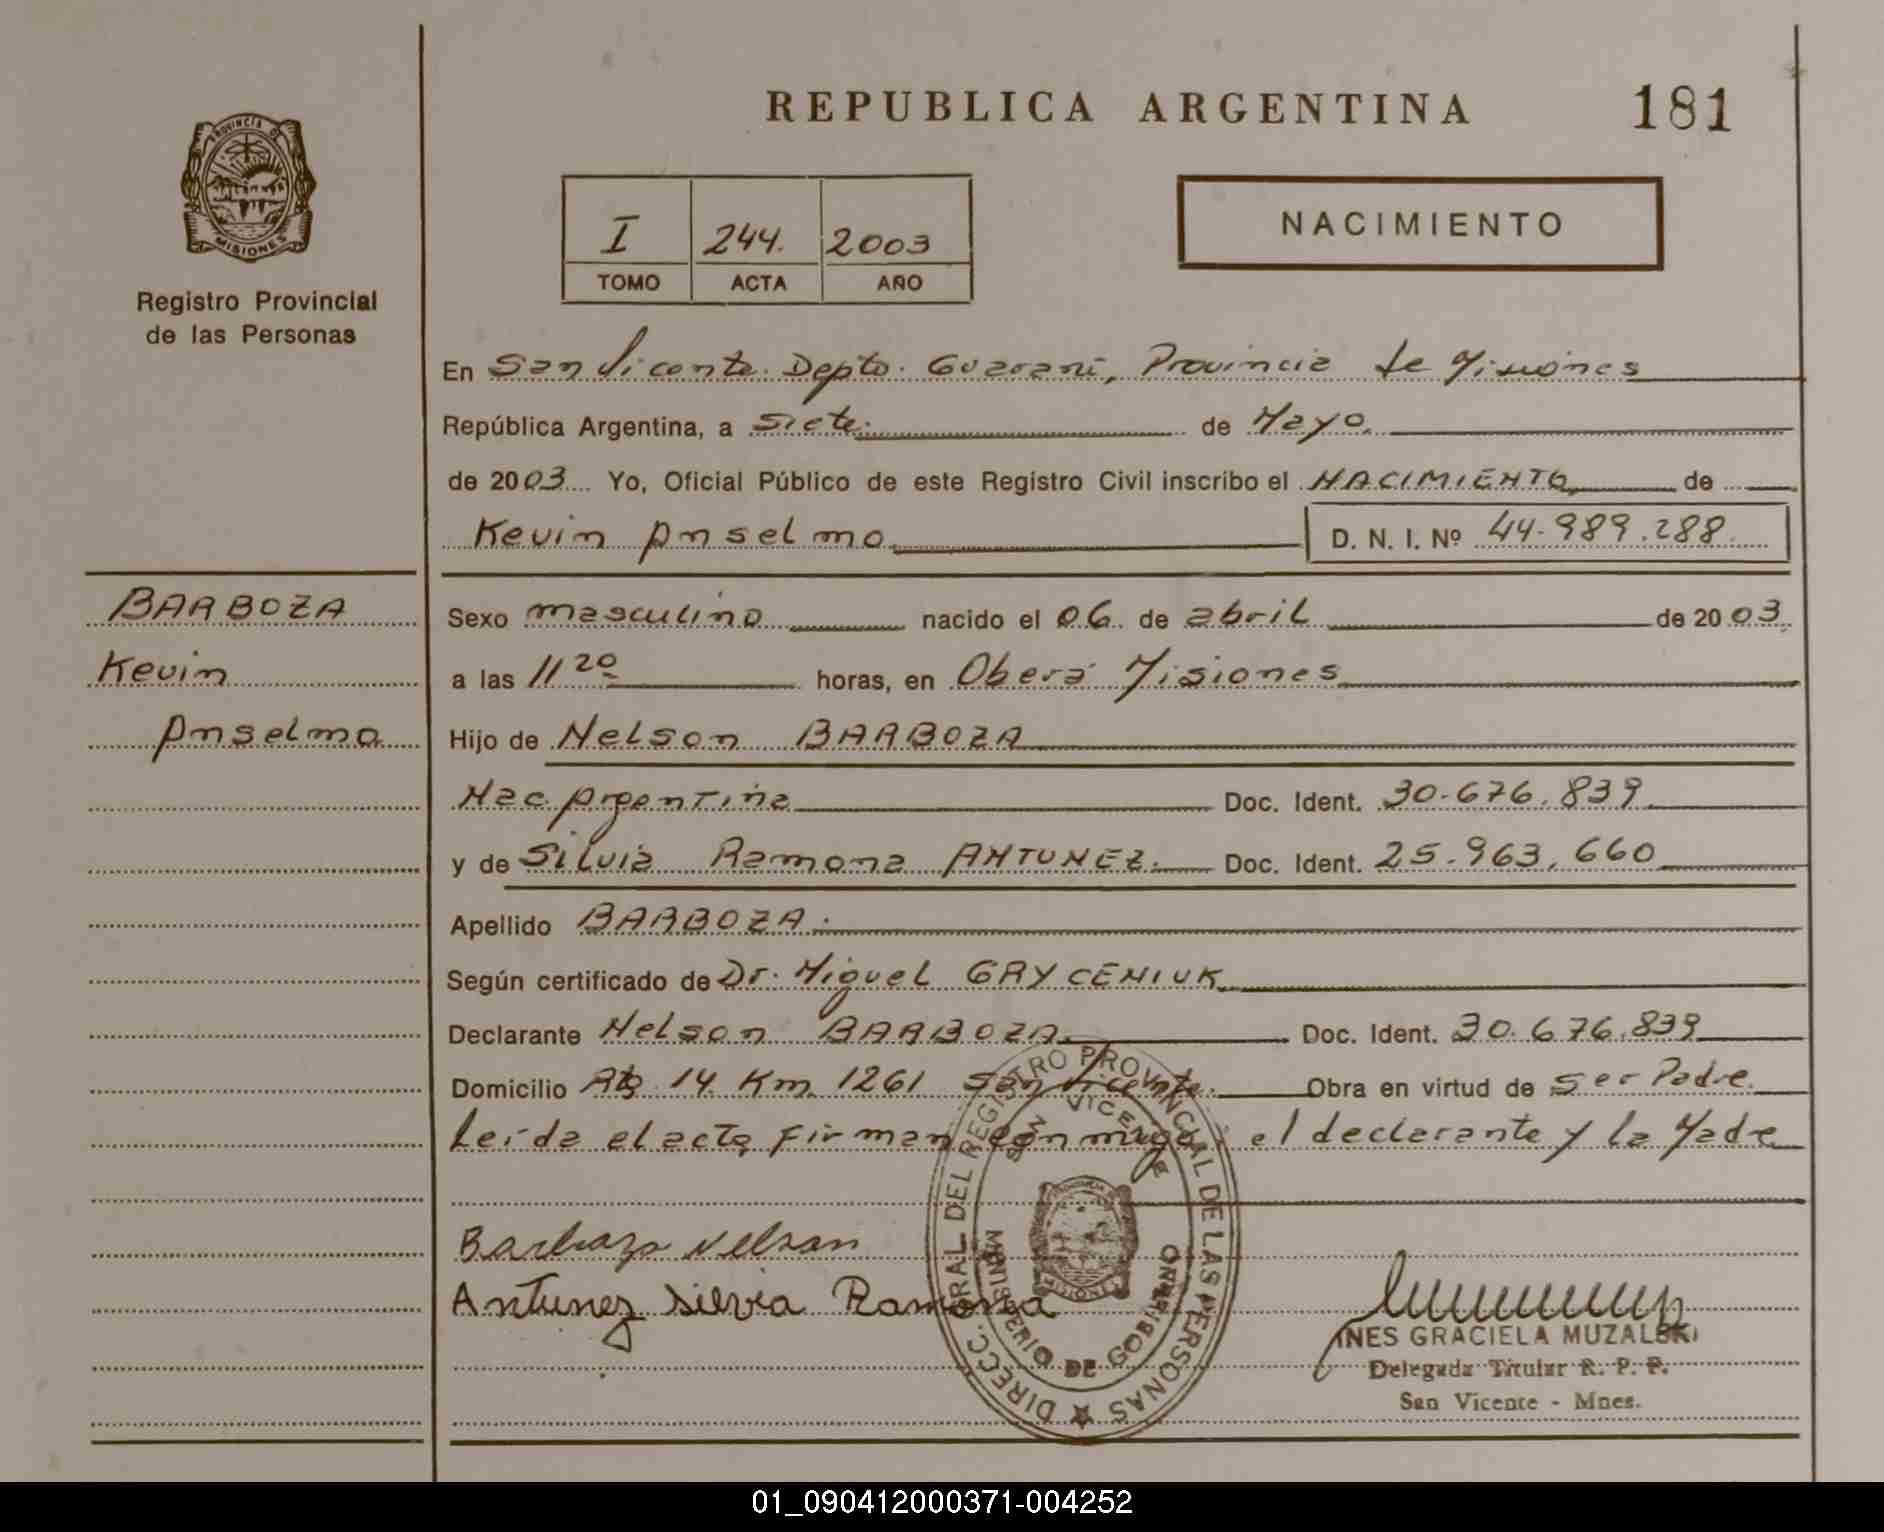 REPUBLICA ARGENTINA
181
PROVINCIA DE
MISIONES
Registro Provincial
de las Personas
I 244. 2003
TOMO ACTA AÑO
NACIMIENTO
En San Vicente. Depto. Guaraní, Provincia de Misiones
República Argentina, a siete. de Mayo.
de 2003 Yo, Oficial Público de este Registro Civil inscribo el NACIMIENTO de
Kevin Anselmo D. N. I. Nº 44.989.288
BARBOZA
Kevin
Anselmo
Sexo masculino nacido el 06 de abril de 2003.
a las 11 20 horas, en Oberá Misiones
Hijo de Nelson BARBOZA
Nac. Argentina Doc. Ident. 30.676.839
y de Silvia Ramona ANTUNEZ. Doc. Ident. 25.963.660
Apellido BARBOZA.
Según certificado de Dr. Miguel GRYCENIUK
Declarante Nelson BARBOZA Doc. Ident. 30.676.839
Domicilio Rta 14 Km. 1261 San Vicente. Obra en virtud de ser Padre.
Leída el acta, firman conmigo, el declarante y la Madre
Barboza Nelson
Antunez Silvia Ramona
DIRECC. GRAL. DEL REGISTRO PROVINCIAL DE LAS PERSONAS
SAN VICENTE
MINISTERIO DE GOBIERNO
INES GRACIELA MUZALSKI
Delegada Titular R. P. P.
San Vicente - Mnes.
01_090412000371-004252